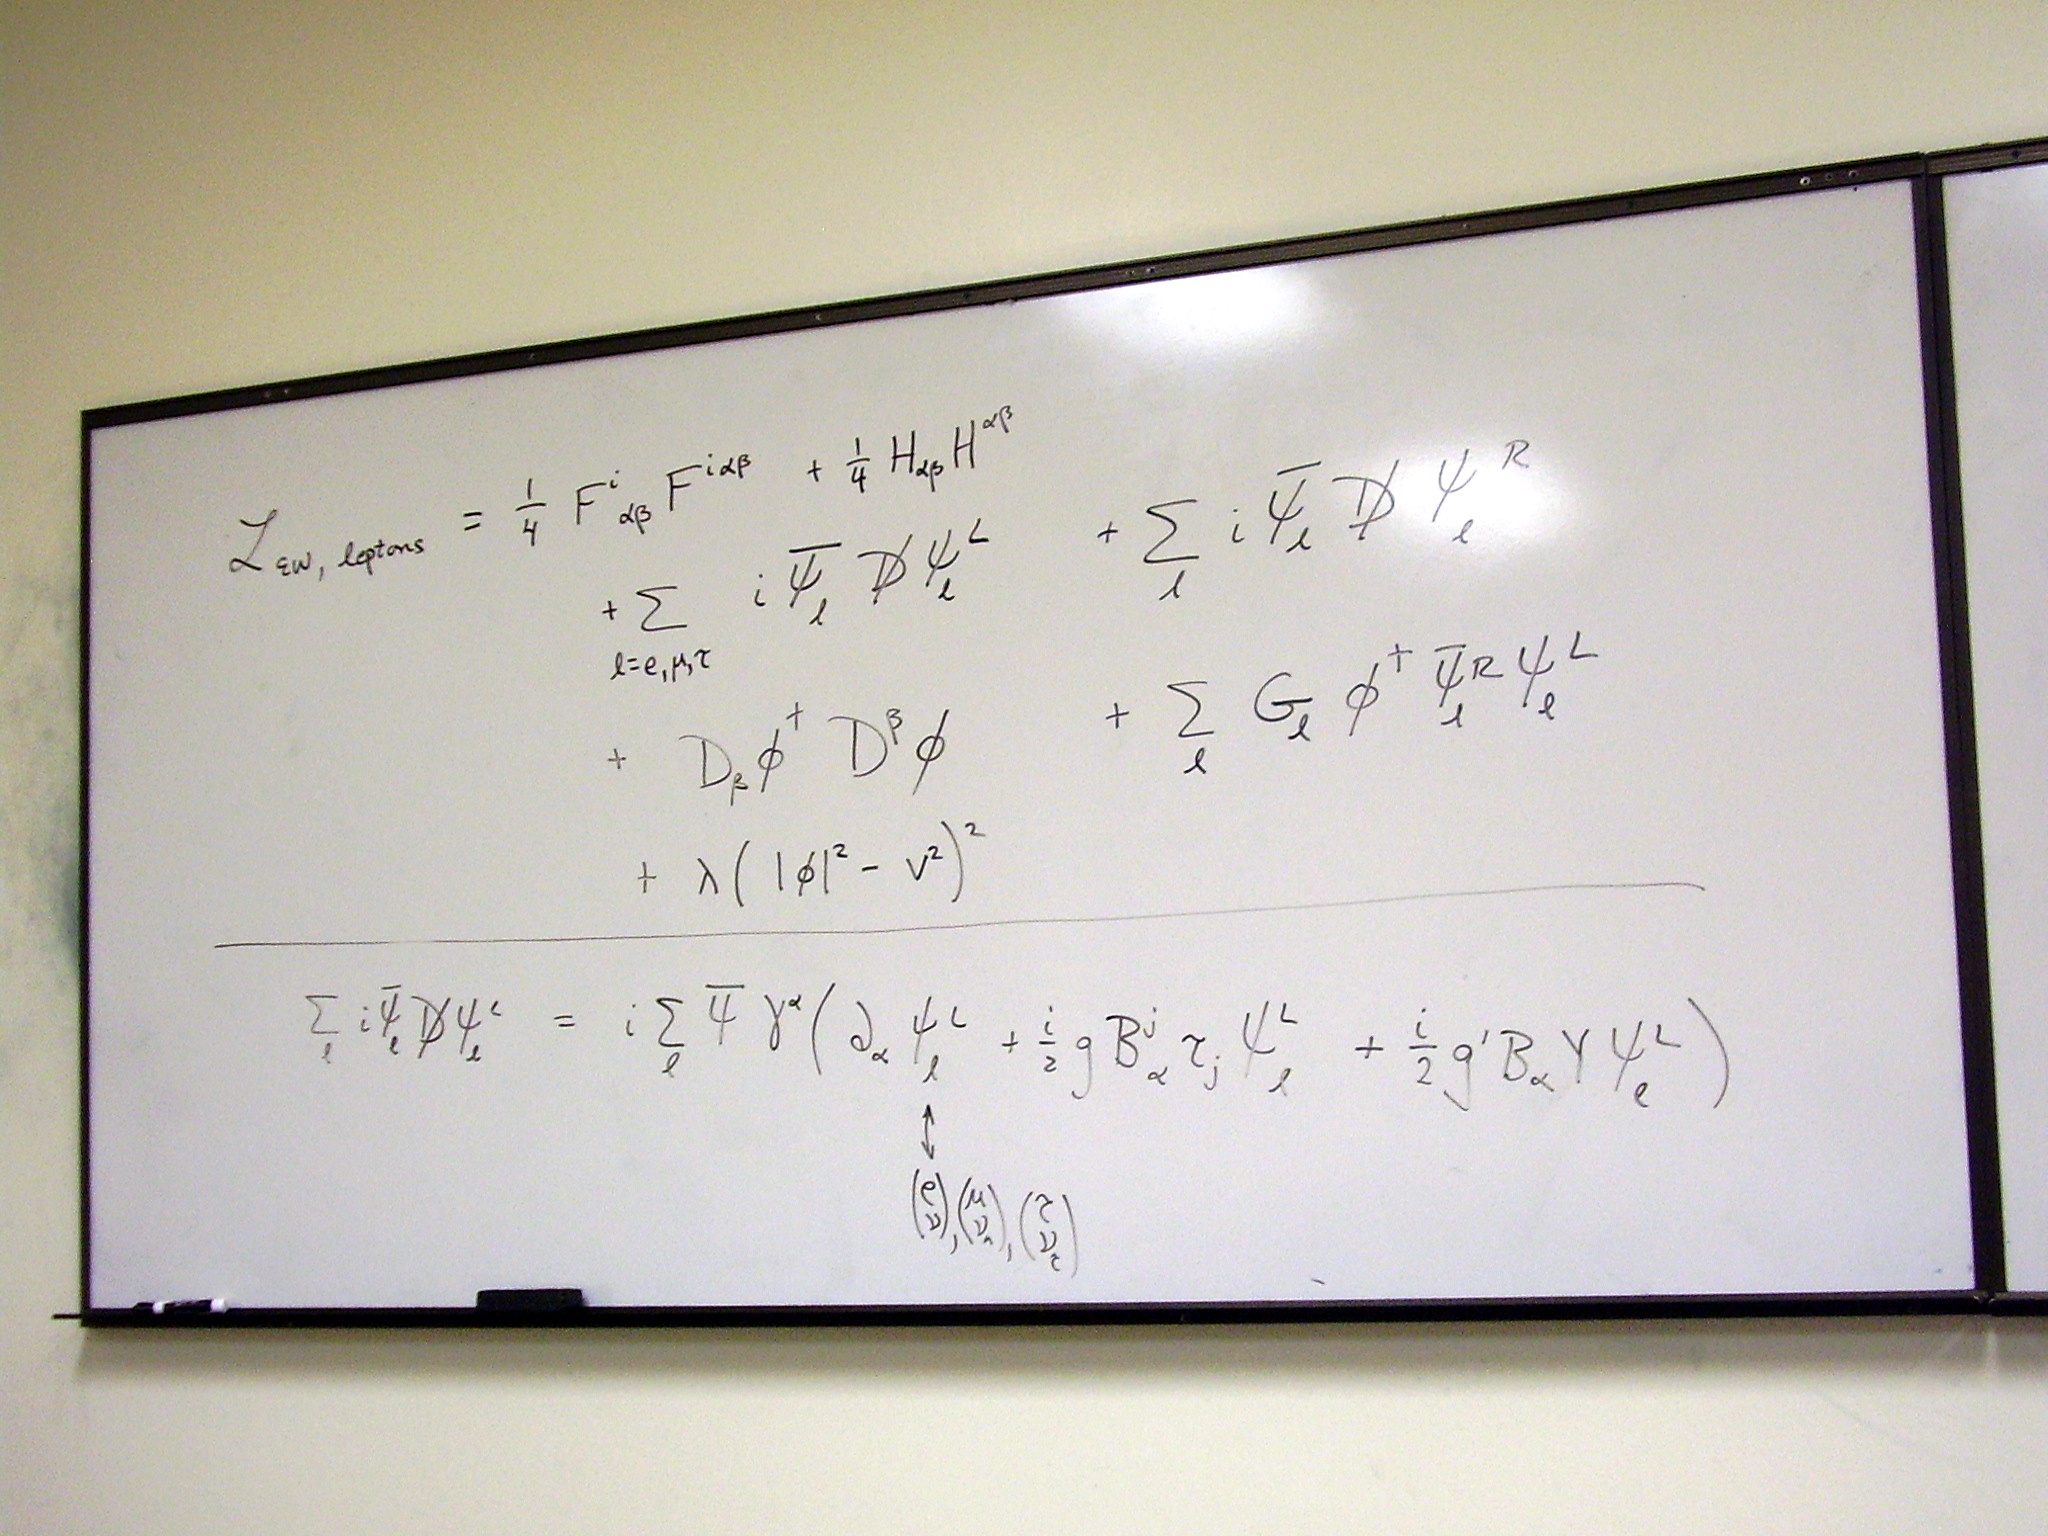 ℒ_{EW, leptons} = 1/4 F^i_{αβ} F^{iαβ} + 1/4 H_{αβ} H^{αβ}
+ Σ_{l=e,μ,τ} i ψ̄_l D̸ ψ_l^L + Σ_l i ψ̄_l D̸ ψ_l^R
+ D_β φ^† D^β φ + Σ_l G_l φ^† ψ̄_l^R ψ_l^L
+ λ( |φ|² - v² )²
Σ_l i ψ̄_l D̸ ψ_l^L = i Σ_l ψ̄ γ^α ( ∂_α ψ_l^L + i/2 g B^j_α τ_j ψ_l^L + i/2 g' B_α Y ψ_l^L )
↕
(e ν), (μ ν_μ), (τ ν_τ)